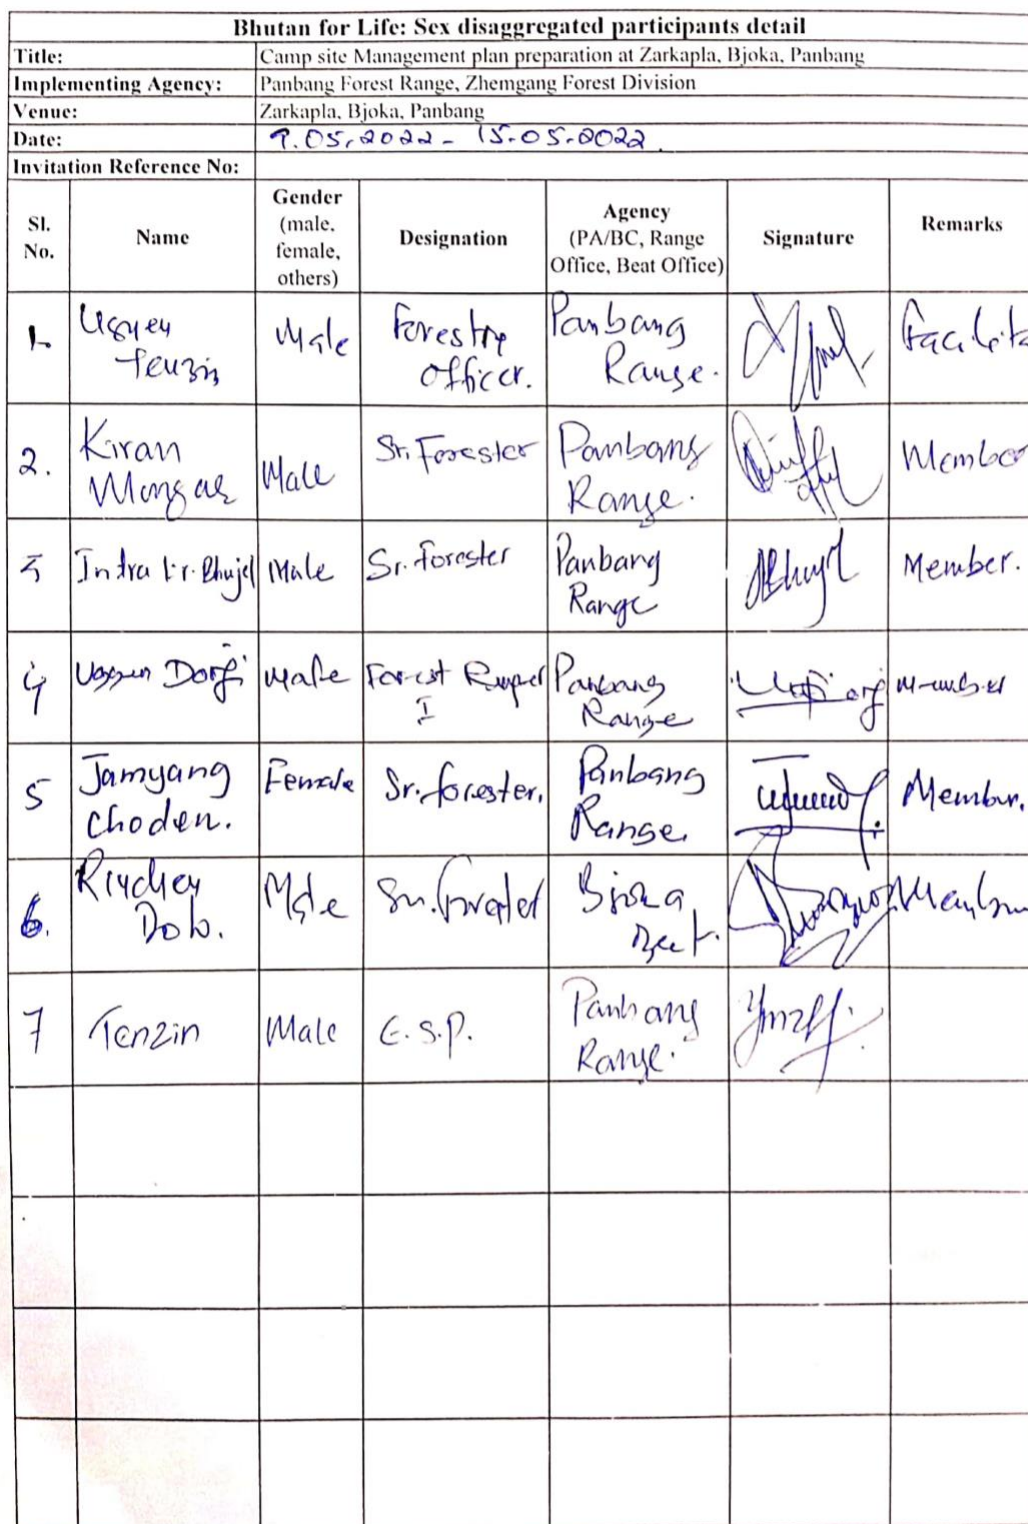 Bhutan for Life: Sex disaggregated participants detail
Title: Camp site Management plan preparation at Zarkapla, Bjoka, Panbang
Implementing Agency: Panbang Forest Range, Zhemgang Forest Division
Venue: Zarkapla, Bjoka, Panbang
Date: 9.05.2022 - 15.05.2022
Invitation Reference No:
Sl. No. Name Gender (male, female, others) Designation Agency (PA/BC, Range Office, Beat Office) Signature Remarks
1. Ugyen Tenzin Male Forestry Officer. Panbang Range. Facilita
2. Kiran Mongar Male Sr. Forester Panbang Range. Member
3 Indra Br. Bhujel Male Sr. forester Panbang Range Member.
4 Ugyen Dorji Male Forest Ranger I Panbang Range Member
5 Jamyang Choden. Female Sr. forester. Panbang Range. Member.
6. Rinchen Male Sr. Forester Bjoka Beat. Member
7 Tenzin Male E.S.P. Panbang Range.